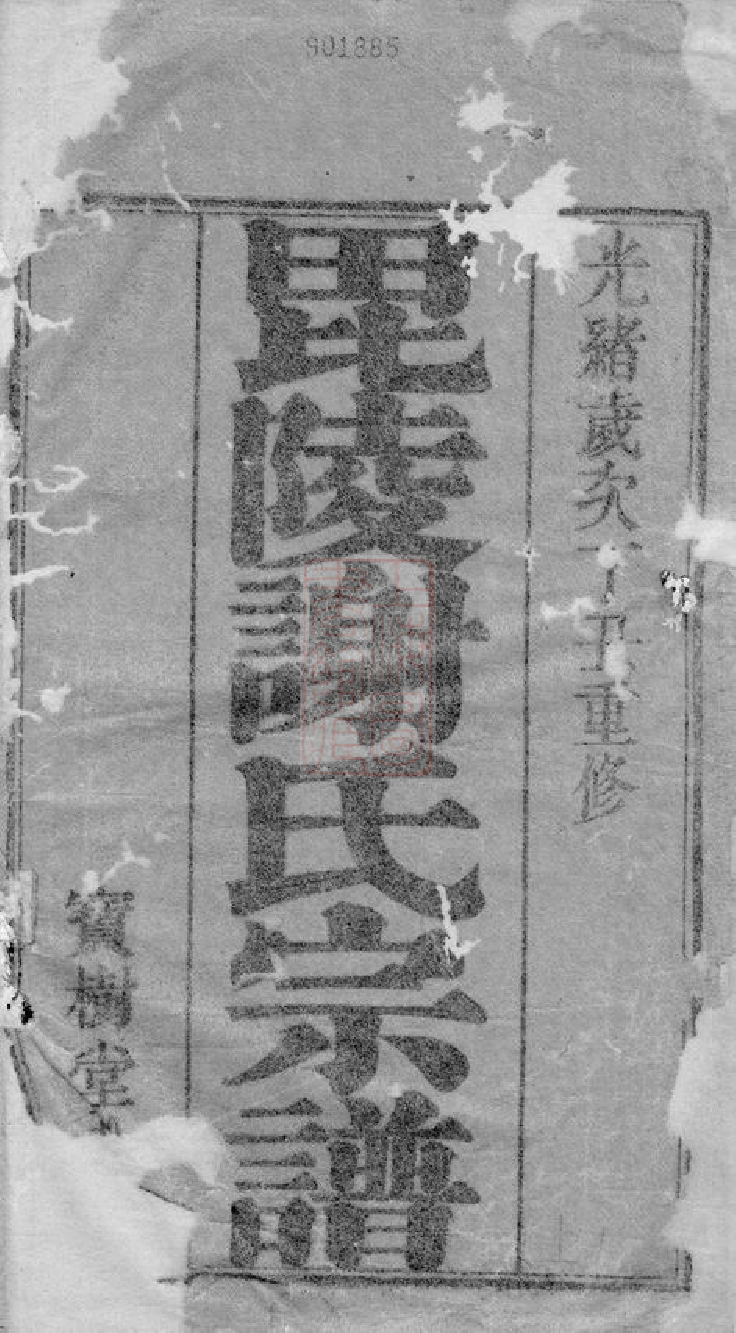 901885
光緒歲次丁丑重修
毘陵謝氏宗譜
寶樹堂